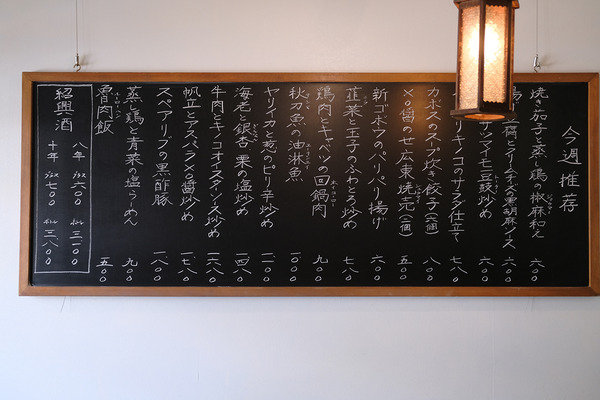 今週 推荐
焼き茄子と蒸し鶏の椒麻和え 六〇〇
クリームチーズの黒胡麻ソース 六〇〇
サツマイモ豆鼓炒め 六〇〇
キノコのサラダ仕立て 七八〇
カボスのスープ炊き餃子(六個) 八〇〇
XO醤のせ広東焼売(二個) 五〇〇
新ゴボウのパリパリ揚げ 六〇〇
韮菜と玉子のふわとろ炒め 七八〇
鶏肉とキャベツの回鍋肉 九〇〇
秋刀魚の油淋魚 一〇〇〇
ヤリイカと葱のピリ辛炒め 一一〇〇
海老と銀杏、栗の塩炒め 一四八〇
牛肉とキノコオイスターソース炒め 一六八〇
帆立とアスパラXO醤炒め 一七八〇
スペアリブの黒酢豚 一八〇〇
蒸し鶏と青菜の塩らーめん 九〇〇
魯肉飯 五〇〇
紹興酒
八年 グラス 六〇〇 ボトル 三二〇〇
十年 グラス 七〇〇 ボトル 三八〇〇